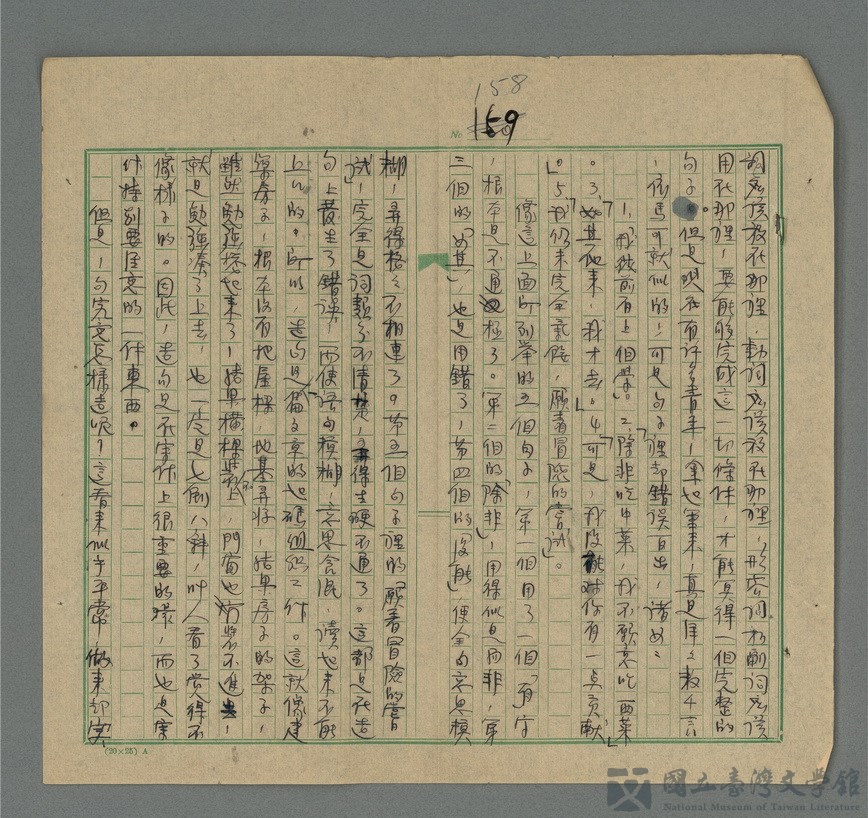 158
159
No
詞應該放在那裡，動詞應該放在那裡，形容詞和副詞應該
用在那裡，要能夠完成這一切條件，才能算得一個完整的
句子。但是現在有許多青年，筆起筆來，真是洋洋數千言
，倚馬可就似的，可是句子裡却錯誤百出，諸如：
1，我從前有上個學。2，「除非吃中菜，我不願意吃西菜
。3，「如其他來，我才去。」4，「可是，我沒能对你有一点貢献」
。5，「我仍未完全氣餒，願著冒險的嘗試」。
像這上面所列舉的五個句子，第一個用了一個「有」字
，根本是不通極了。第二個的「除非」，用得似是而非，第
三個的「如其」，也是用錯了，第四個的「沒能」，便全句意思模
糊，弄得格格不相連了。第五個句子裡的「願著冒險的嘗
試」，完全是詞類分不清楚，弄得生硬不通了。這都是在造
句上發生了錯誤，而使語句模糊，意思含混，讀起來不能
上口的。所以，造句是篇文章的起碼組織工作。這就像建
築房子，根本沒有地屋樑，地基弄好，結果房子的架子，
雖然勉強搭起來了，結果橫樑裝不上，門窗也安裝不進去，
就是勉強湊了上去，也一定是七剮八斜，叫人看了覺得不
像樣子的。因此，造句是在寫作上很重要的一環，而也是寫
作特別要注意的一件東西。
但是，句究竟怎樣造呢？這看來似乎平常，做來却实
(20×25) A
國立臺灣文學館
National Museum of Taiwan Literature